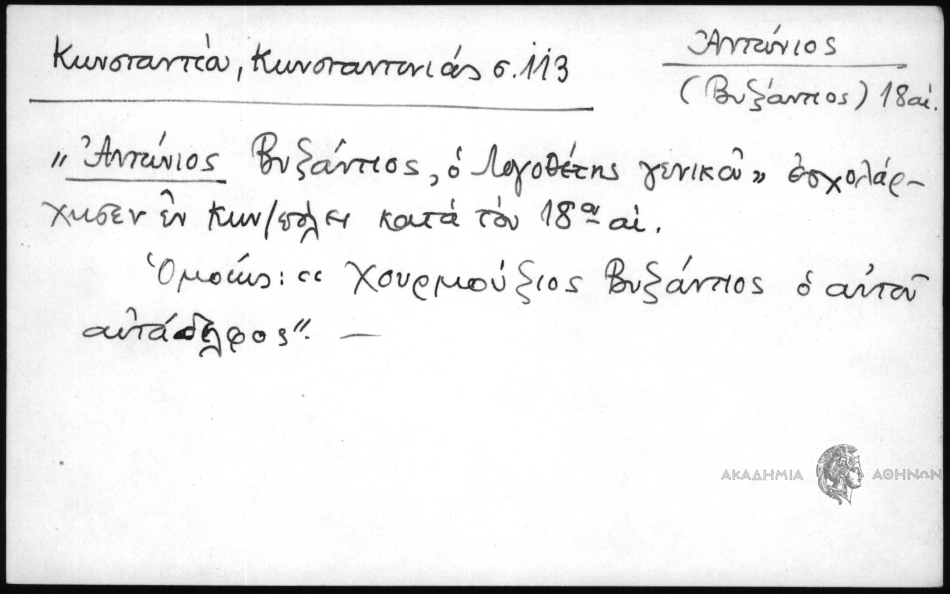 Κωνσταντίου, Κωνσταντινιάς σ. 113
Ἀντώνιος
(Βυζάντιος) 18 αἰ.
„Ἀντώνιος Βυζάντιος, ὁ Λογοθέτης γενικοῦ„ ἐσχολάρ-
χησεν ἐν Κων/πόλει κατὰ τὸν 18ον αἰ.
Ὁμοίως: “ Χουρμούζιος Βυζάντιος ὁ αὐτοῦ
αὐτάδελφος”. —
ΑΚΑΔΗΜΙΑ ΑΘΗΝΩΝ